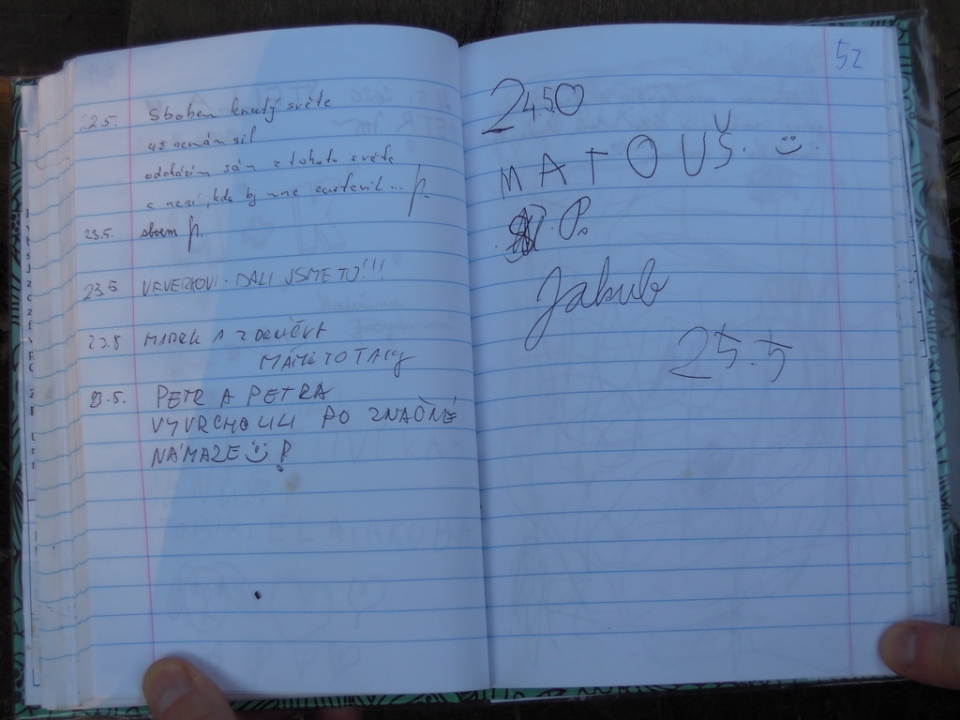 22.5. Sbohem krutý světe
už nemám sil
odcházím sám z tohoto světa
a není, kdo by mne zastavil... P.
23.5. sbohem P.
23.5 VEVERKOVI - DALI JSME TO!!!
23.5 MAREK A ZDENĚK
MÁME TO TAKY
23.5. PETR A PETRA
VYVRCHOLILI PO ZNAČNÉ
NÁMAZE
52
2450
MATOUŠ.
P.
Jakub
25.5